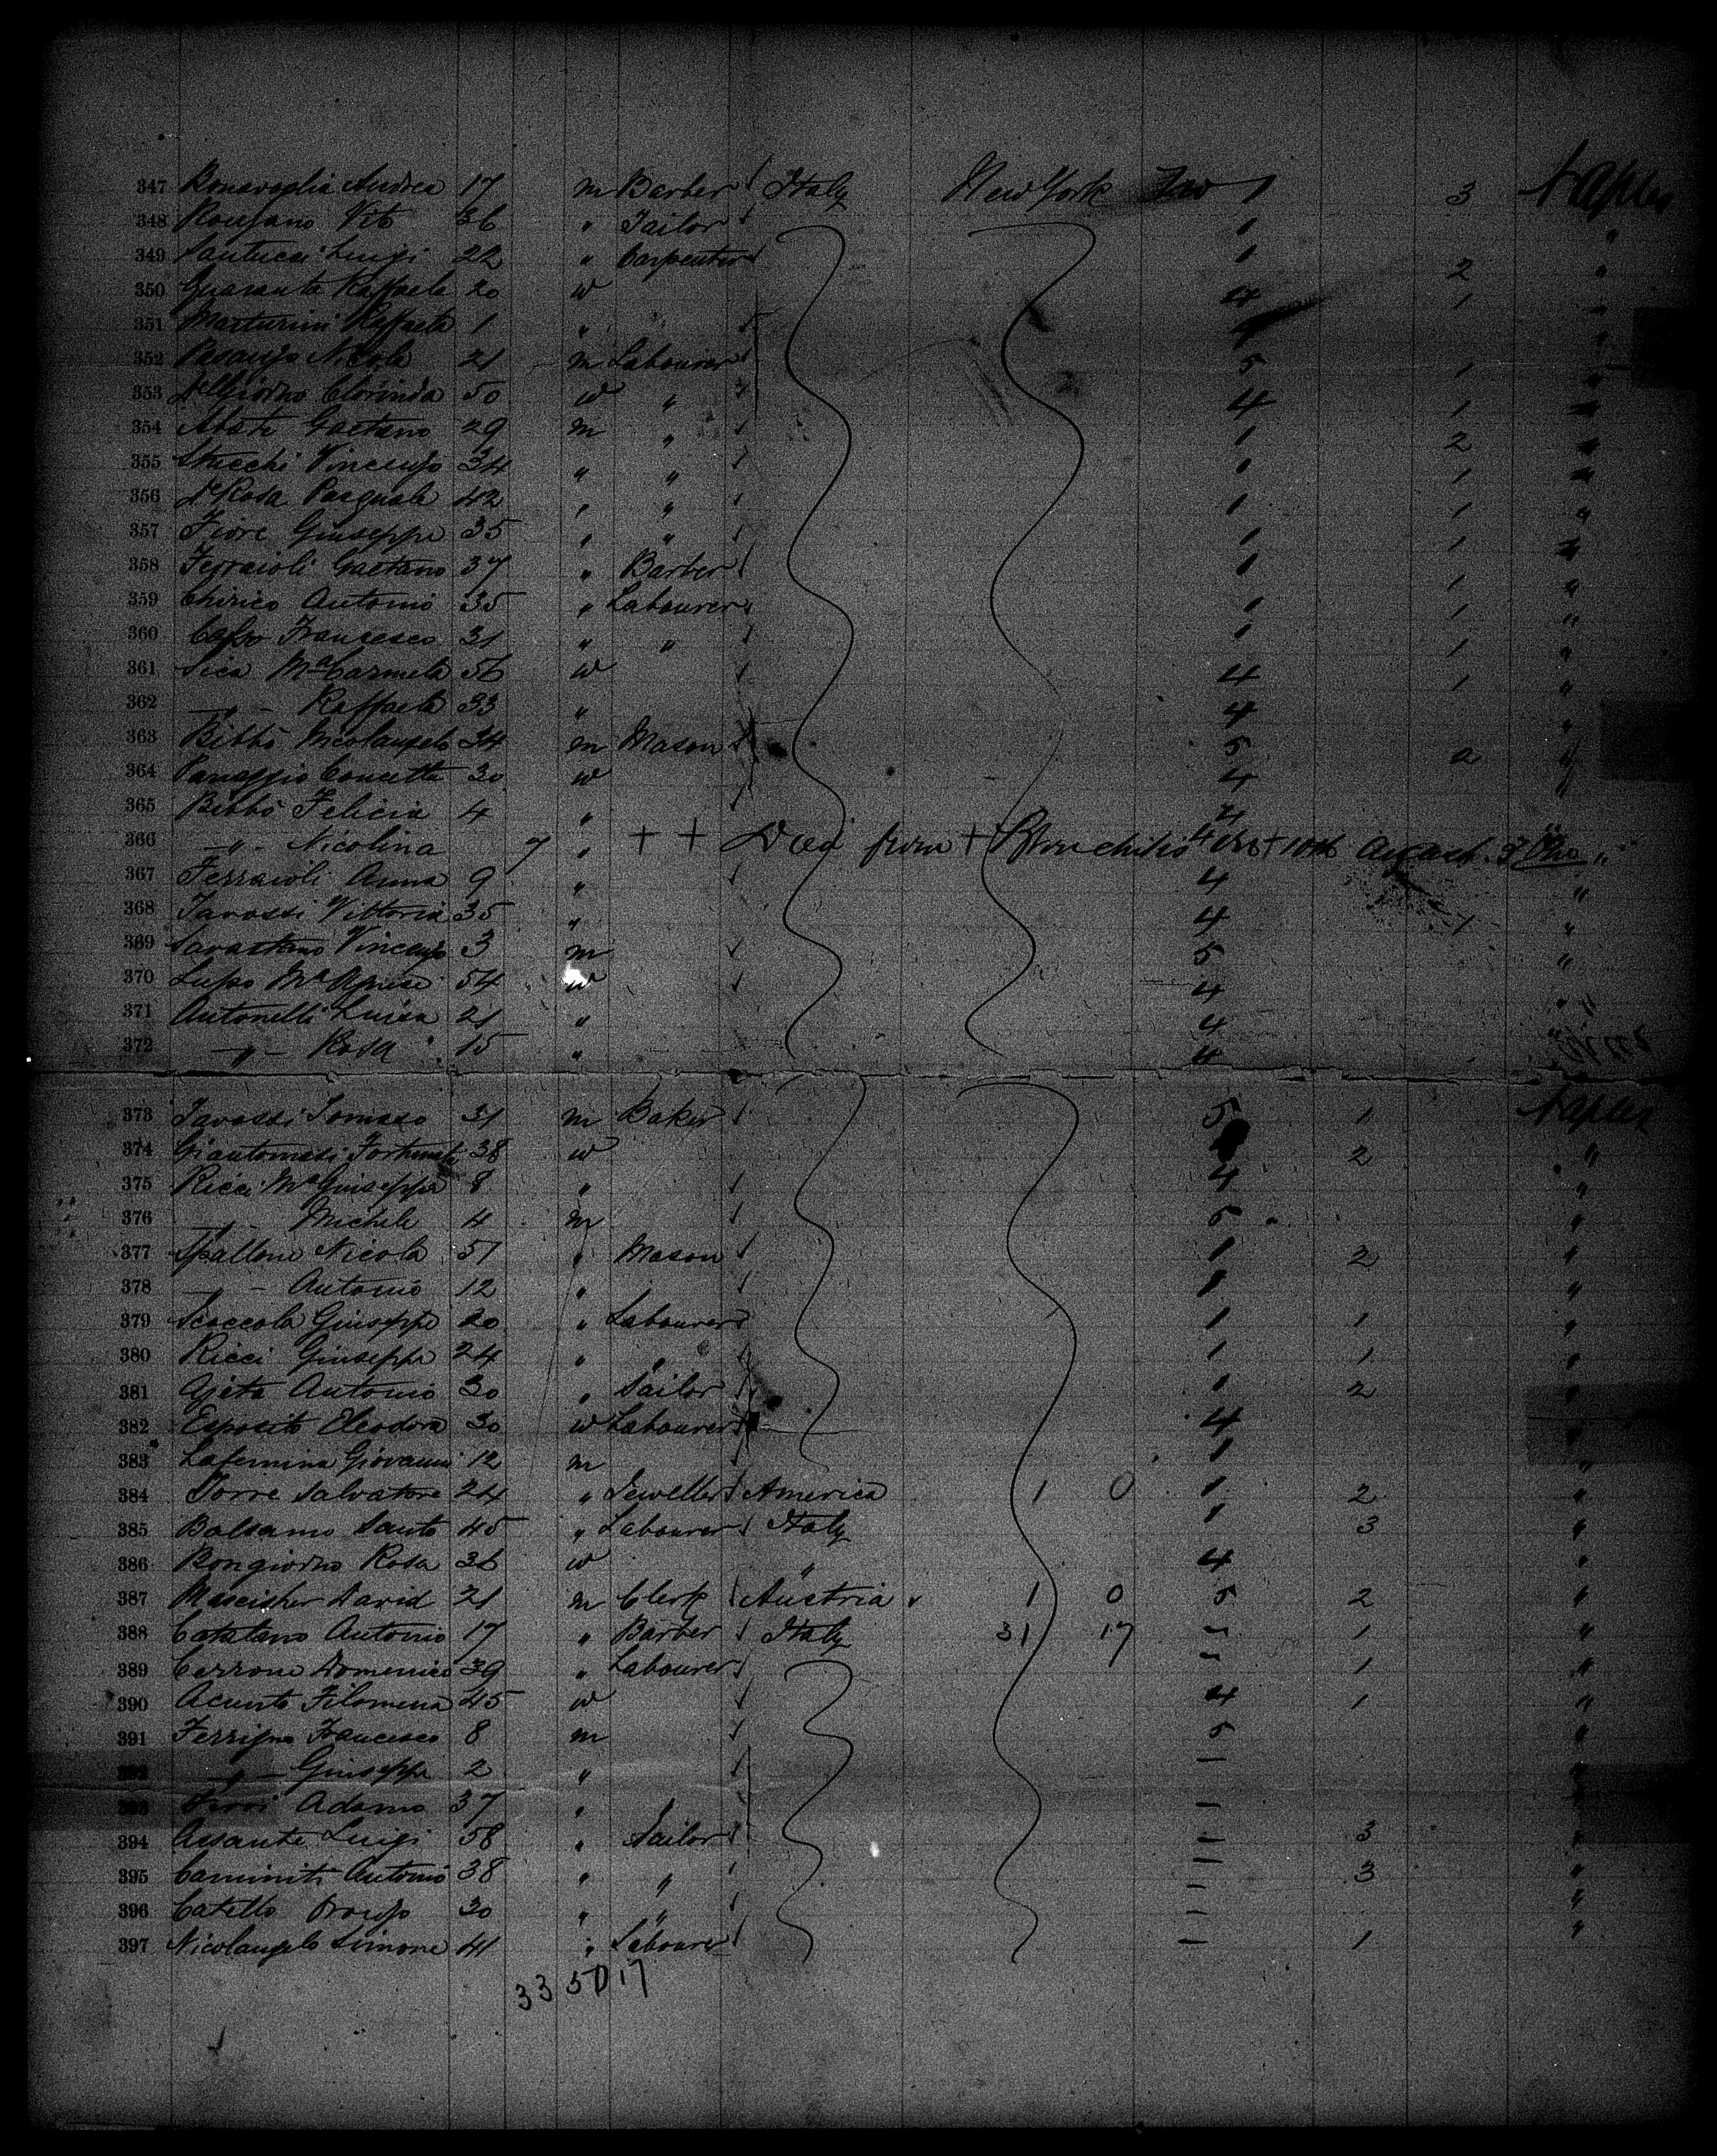 347 Bonavoglia Andrea 17 m Barber Italy New York 1 3 Naples
348 Vito 36 " Tailor 1 "
349 Santucci Luigi 22 " Carpenter 1 2 "
350 Guaranta Raffaela 20 w 4 1 "
351 Raffaela 1 " 4 "
352 Nicola 21 m Labourer 5 1 "
353 Clorinda 50 w " 4 1 "
354 Abate Gaetano 29 m " 1 2 "
355 Stucchi Vincenzo 34 " " 1 1 "
356 De Rosa Pasquale 42 " " 1 1 "
357 Fiore Giuseppe 35 " " 1 1 "
358 Ferraioli Gaetano 37 " Barber 1 1 "
359 Chirico Antonio 35 " Labourer 1 1 "
360 Francesco 31 " " 1 1 "
361 Sica Ma Carmela 56 w 4 1 "
362 " Raffaela 33 " 4 "
363 Bibbò Nicolangelo 34 m Mason 5 2 "
364 Concetta 30 w 4 "
365 Bibbò Felicia 4 " 4 "
366 " Nicolina 7 " + + Died from + Bronchitis + on + 10th August
367 Ferraioli Anna 9 " 4 "
368 Tavossi Vittoria 35 " 4 1 "
369 Savastano Vincenzo 3 m 5 "
370 Lupo Ma Agnese 54 w 4 "
371 Antonelli Luisa 21 " 4 "
372 " Rosa 15 " 4
373 Tavossi Tomaso 31 m Baker 5 1 Naples
374 Giantomasi Fortunata 38 w 2 "
375 Ricci Ma Giuseppa 8 " 4 "
376 " Michele 4 m 5 "
377 Spallone Nicola 51 " Mason 1 2 "
378 " Antonio 12 " 1 "
379 Scoccola Giuseppe 20 " Labourer 1 1 "
380 Ricci Giuseppe 24 " " 1 1 "
381 Ajeta Antonio 30 " Sailor 1 2 "
382 Esposito Eleodora 30 w Labourer 4 "
383 Lafemina Giovanni 12 m 1 "
384 Torre Salvatore 24 " Jeweller America 1 0 1 2 "
385 Balsamo Santo 45 " Labourer Italy 1 3 "
386 Bongiorno Rosa 36 w " 4 "
387 David 21 m Clerk Austria 1 0 5 2 "
388 Catalano Antonio 17 " Barber Italy 31 17 – 1 "
389 Cerrone Domenico 39 " Labourer – 1 "
390 Acunto Filomena 45 w 4 1 "
391 Ferrigno Francesco 8 m 5 "
392 " Giuseppe 2 " – "
393 Adamo 37 " – "
394 Assante Luigi 58 " Sailor – 3 "
395 Caminiti Antonio 38 " " – 3 "
396 Catello 30 " " – "
397 Nicolangelo Simone 41 " Labourer – 1 "
33 17